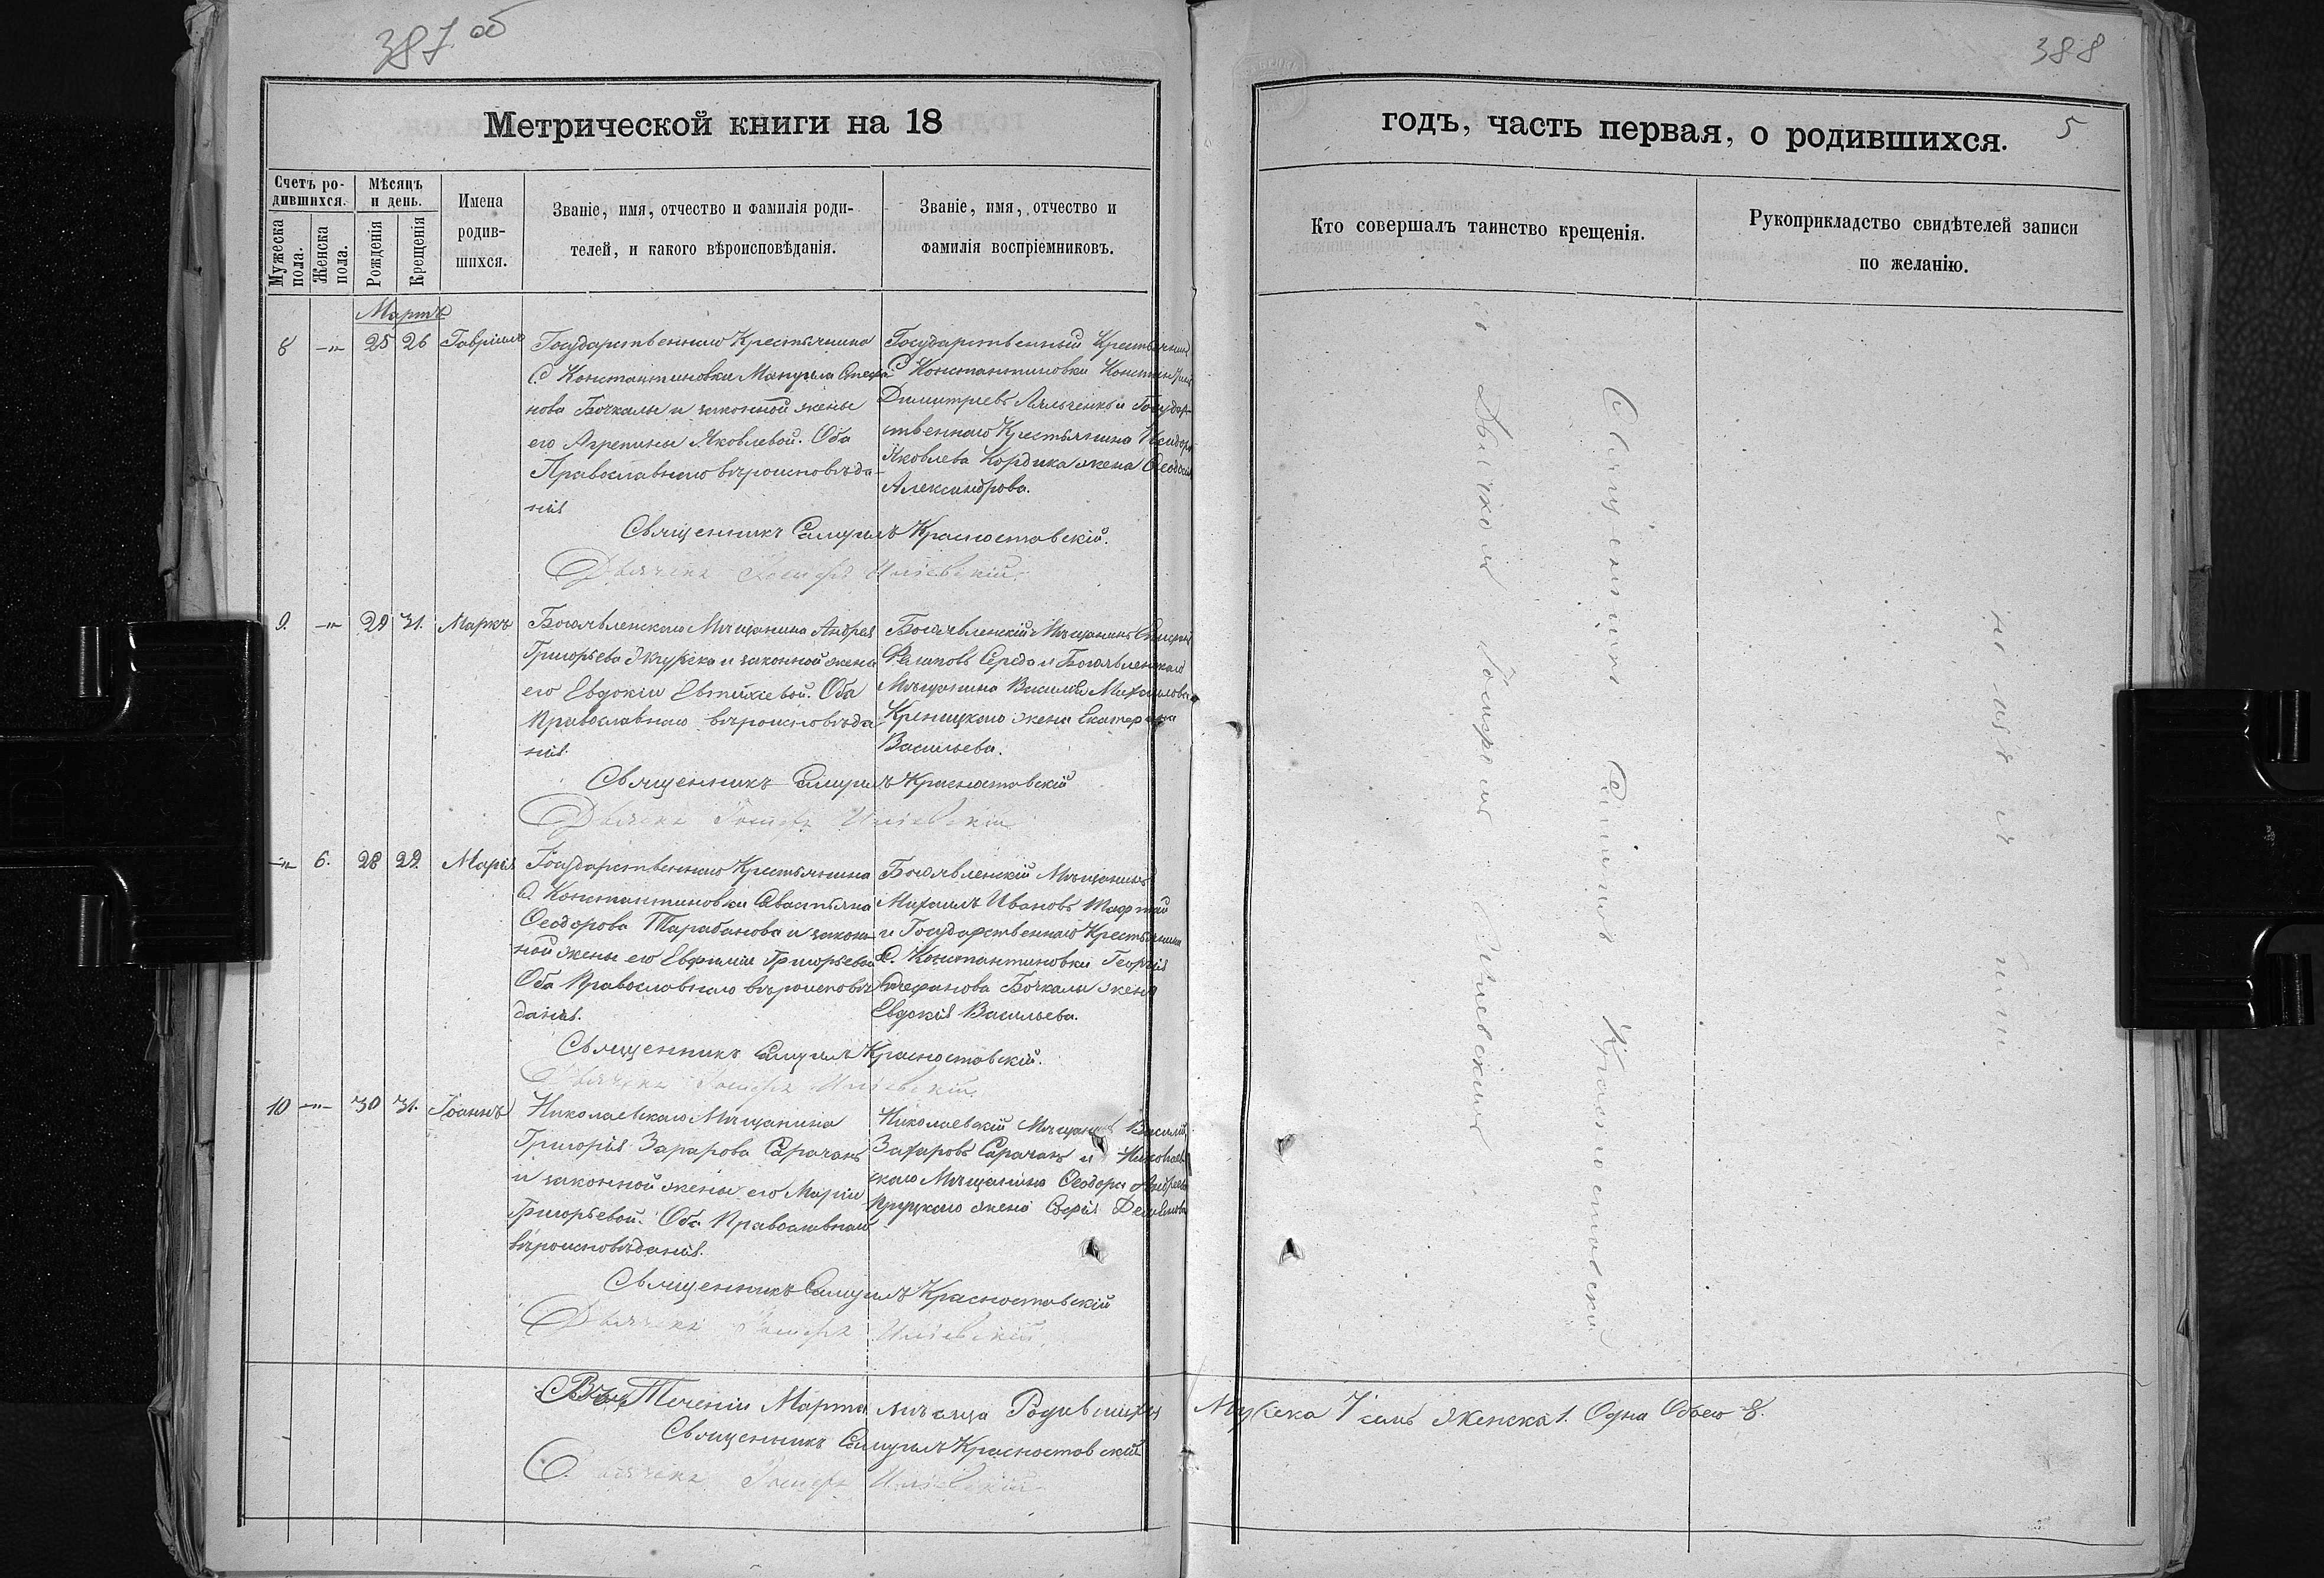 387 об
388
Метрической книги на 18
годъ, часть первая, о родившихся.
5
Счетъ ро-
дившихся.
Мужеска
пола.
Женска
пола.
Мѣсяцъ
и день.
Рожденія
Крещенія
Имена
родив-
шихся.
Званіе, имя, отчество и фамилія роди-
телей, и какого вѣроисповѣданія.
Званіе, имя, отчество и
фамилія воспріемниковъ.
Кто совершалъ таинство крещенія.
Рукоприкладство свидѣтелей записи
по желанію.
Мартъ
8 -"- 25 26 Гавріилъ
Государственнаго Крестьянина
С Константиновки Мануила Стефа
нова Бочкалы и законной жены
его Агрепины Яковлевой. Оба
Православнаго вѣроисповѣда-
нія
Государственный Крестьянинъ
С Константиновки
Димитревъ и Государ-
ственнаго Крестьянина
Яковлева Кордика жена Феодосія
Александрова.
Священникъ Самуилъ Красностовскій.
Дьячекъ Іосифъ
9. -"- 29 31. Маркъ
Богоявленскаго Мѣщанина Андрея
Григорьева и законной жены
его Евдокіи Евтихіевой. Оба
Православнаго вѣроисповѣда
нія.
Богоявленскій Мѣщанинъ
Середа и Богоявленскаго
Мѣщанина Василія Михайлова
жена Екатерина
Васильева.
Священникъ Самуилъ Красностовскій
Дьячекъ Іосифъ
-"- 6. 28 29. Марія
Государственнаго Крестьянина
С. Константиновки Савастьяна
Феодорова Тарабанова и закон-
ной жены его Евфиміи Григорьевой
Оба Православнаго вѣроисповѣ
данія.
Богоявленскій Мѣщанинъ
Михаилъ Ивановъ
и Государственнаго Крестьянина
С. Константиновки Георгія
Стефанова Бочкалы жена
Евдокія Васильева.
Священникъ Самуилъ Красностовскій.
Дьячекъ Іосифъ
10 -"- 30 31. Іоаннъ
Николаевскаго Мѣщанина
Григорія Захарова Сарачанъ
и законной жены его Маріи
Григорьевой. Оба Православнаго
вѣроисповѣданія.
Николаевскій Мѣщанинъ Василій
Захаровъ Сарачанъ и Николаев
скаго Мѣщанина Феодора Андреева
жена Софія
Священникъ Самуилъ Красностовскій
Дьячекъ Іосифъ
Священникъ Самуилъ Красностовскій
Дьячкомъ Іосифомъ
Теченіи Марта мѣсяца Родившихся Мужеска 7 семь Женска 1. Одна Обоего 8.
Священникъ Самуилъ Красностовскій
Дьячекъ Іосифъ